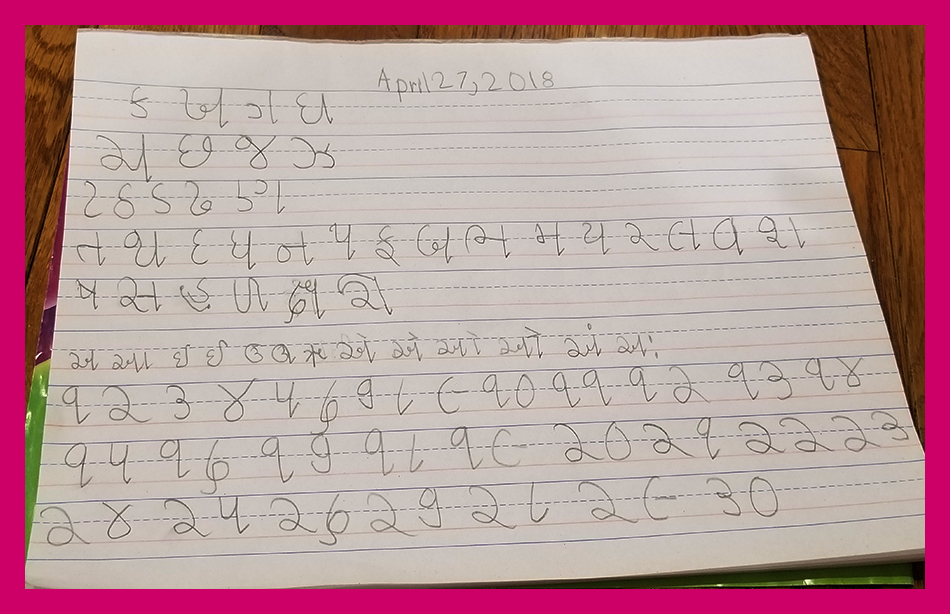 April 27, 2018
ક ખ ગ ઘ
ચ છ જ ઝ
ટ ઠ ડ ઢ ણ
ત થ દ ધ ન પ ફ બ ભ મ ય ર લ વ શ
ષ સ હ ળ ક્ષ જ્ઞ
અ આ ઇ ઈ ઉ ઊ ઋ એ ઐ ઓ ઔ અં અઃ
૧ ૨ ૩ ૪ ૫ ૬ ૭ ૮ ૯ ૧૦ ૧૧ ૧૨ ૧૩ ૧૪
૧૫ ૧૬ ૧૭ ૧૮ ૧૯ ૨૦ ૨૧ ૨૨ ૨૩
૨૪ ૨૫ ૨૬ ૨૭ ૨૮ ૨૯ ૩૦